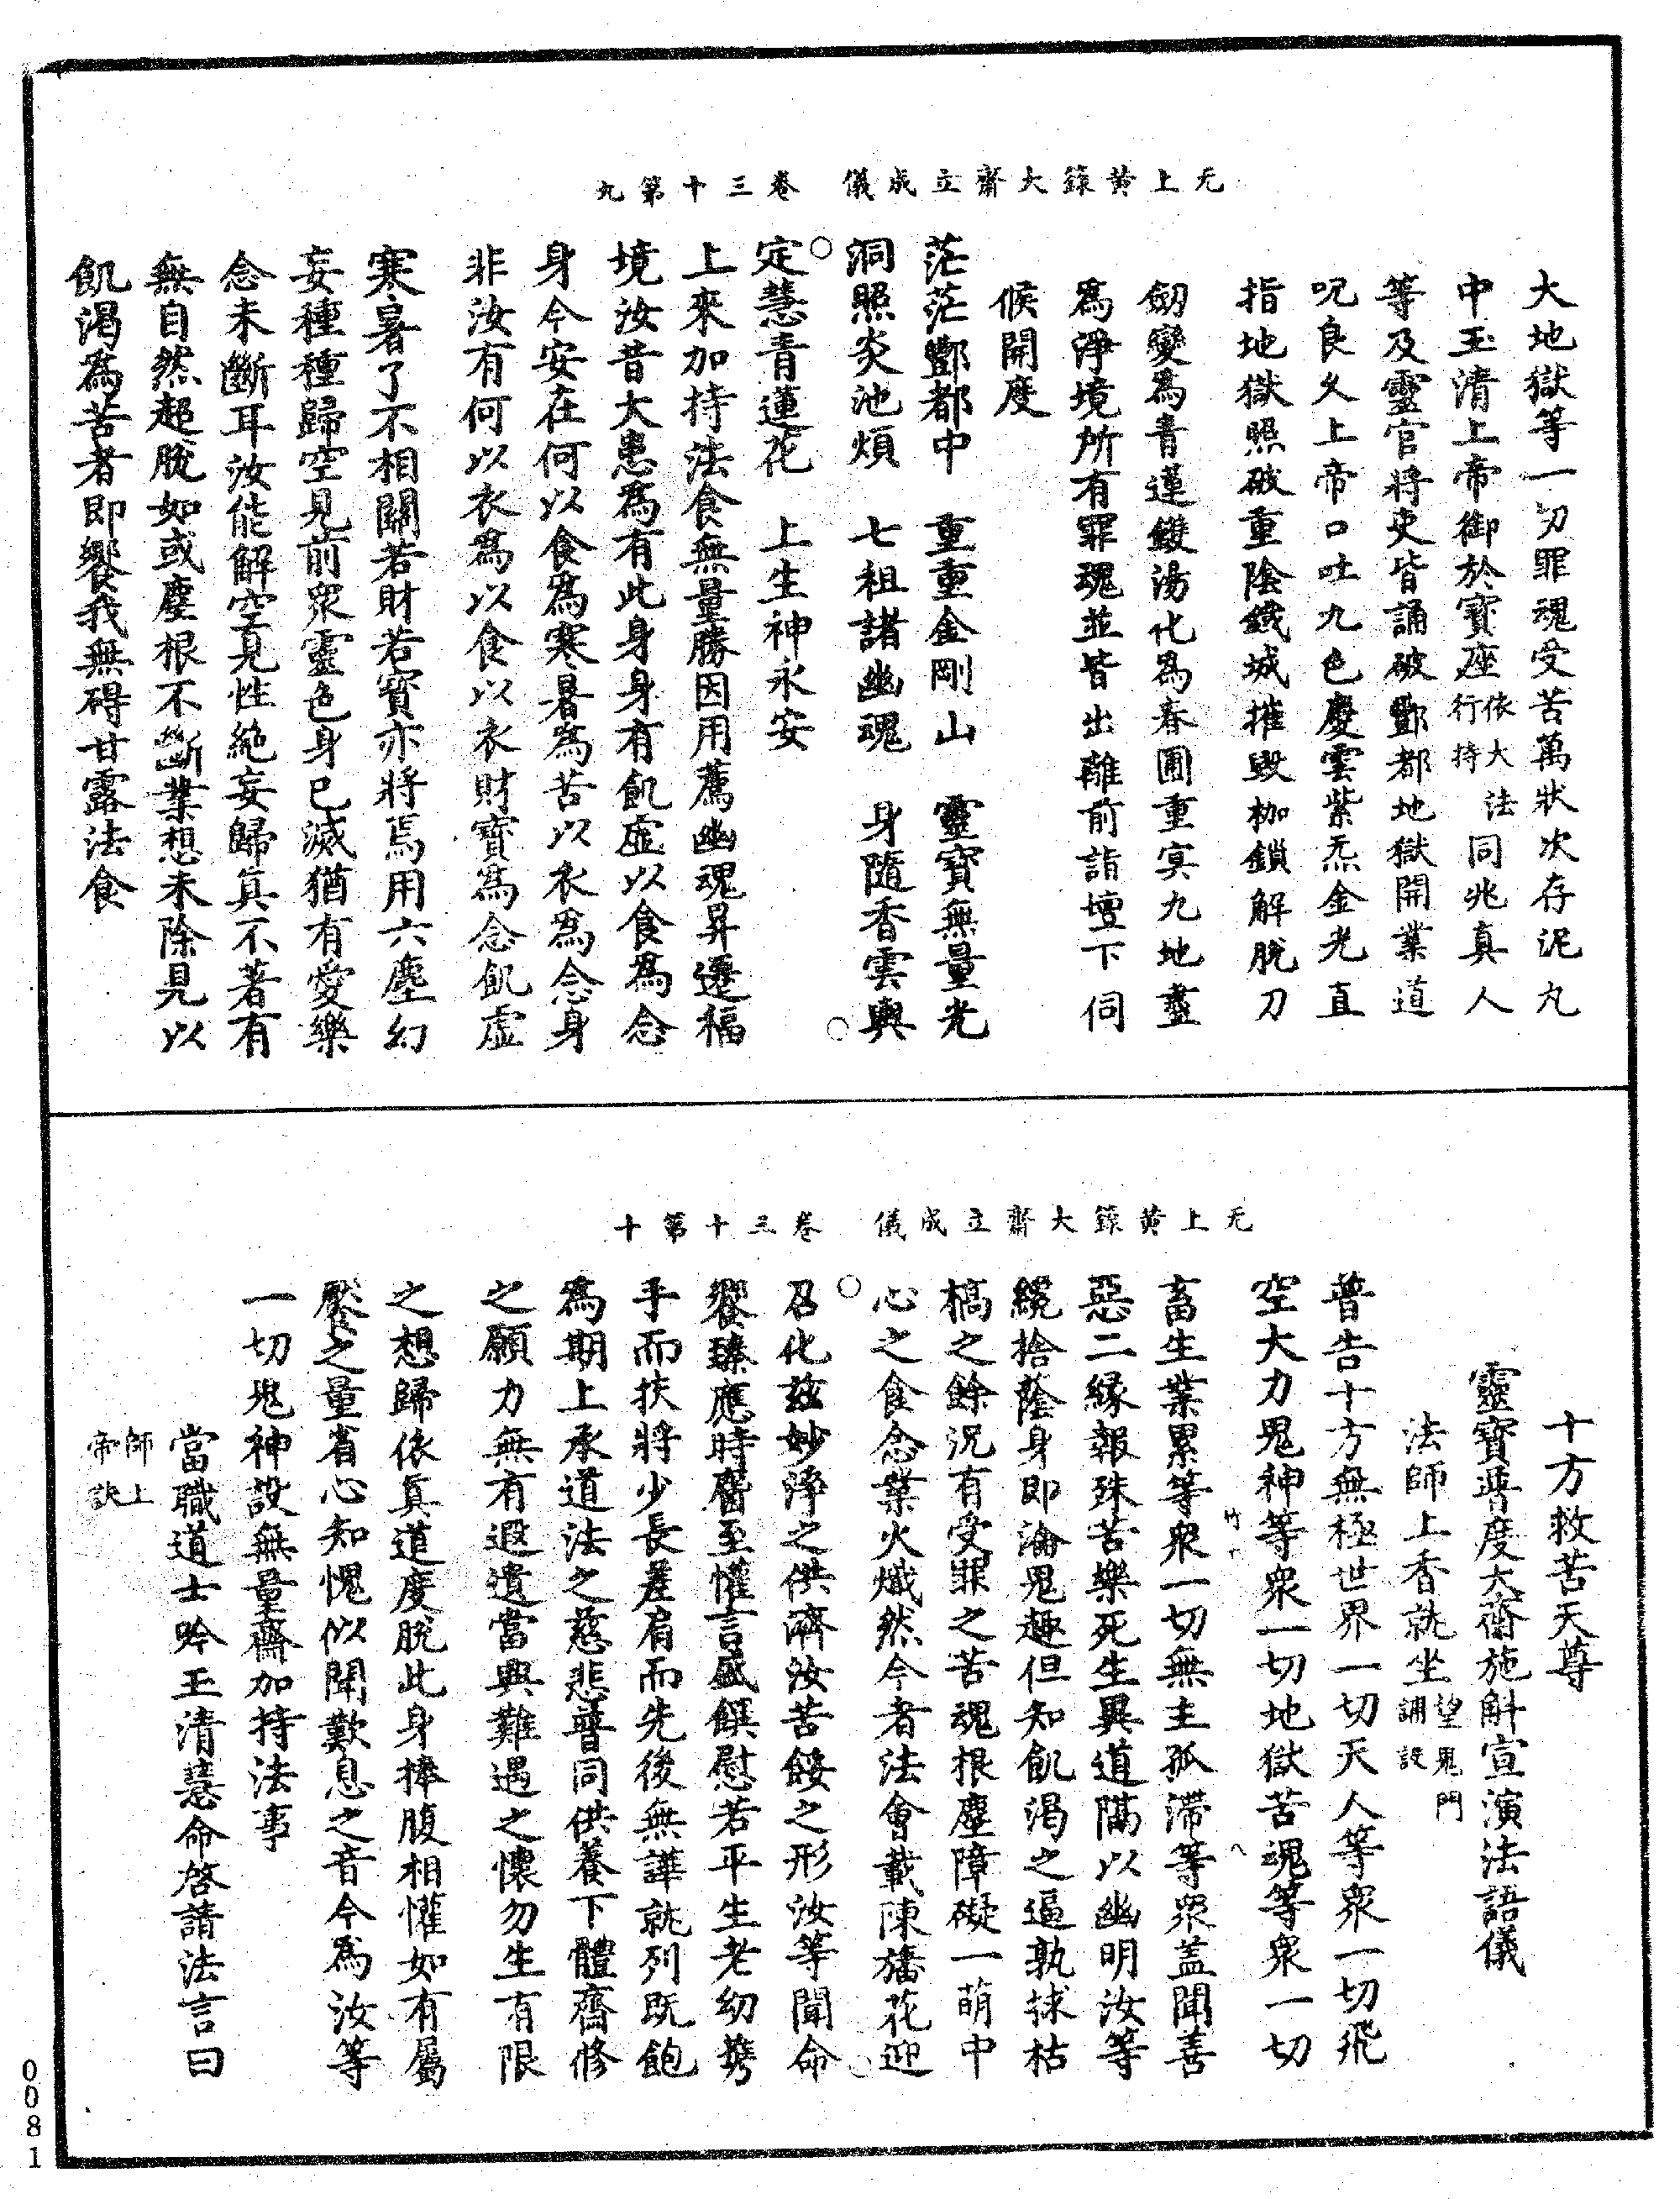 无上黃籙大齋立成儀　卷三十第九
大地獄等一切罪魂受苦萬狀次存泥丸
中玉清上帝御於寶座依大法行持同兆真人
等及靈官將吏皆誦破酆都地獄開業道
呪良久上帝口吐九色慶雲紫炁金光直
指地獄照破重陰鐵城摧毀枷鎖解脫刀
劒變為青蓮鑊湯化為春圃重㝠九地盡
為淨境所有罪魂並皆出離前詣壇下伺
候開度
茫茫酆都中　重重金剛山　靈寶無量光
洞照炎池煩　七祖諸幽魂　身隨香雲輿
定慧青蓮花　上生神永安
上來加持法食無量勝因用薦幽魂昇遷福
境汝昔大患為有此身身有飢虛以食為念
身今安在何以食為寒暑為苦以衣為念身
非汝有何以衣為以食以衣財寶為念飢虛
寒暑了不相關若財若寶亦將焉用六塵幻
妄種種歸空見前眾靈色身已滅猶有愛樂
念未斷耳汝能解空見性絕妄歸真不著有
無自然超脫如或塵根不斷業想未除見以
飢渴為苦者即饗我無碍甘露法食
无上黃籙大齋立成儀　卷三十第十
十方救苦天尊
靈寶普度大齋施斛宣演法語儀
法師上香就坐望鬼門誦設
普告十方無極世界一切天人等眾一切飛
空大力鬼神等眾一切地獄苦魂等眾一切
畜生業累等眾一切無主孤滯等眾盖聞善
惡二緣報殊苦樂死生異道隔以幽明汝等
纔捨蔭身即淪鬼趣但知飢渴之逼孰拯枯
槁之餘況有受罪之苦魂根塵障礙一萌中
心之食念業火熾然今者法會載陳旛花迎
召化茲妙淨之供濟汝苦餒之形汝等聞命
饗臻應時麕至懽言盛饌慰若平生老幼携
手而扶將少長差肩而先後無譁就列既飽
為期上承道法之慈悲普同供養下體齋修
之願力無有遐遺當興難遇之懷勿生有限
之想歸依真道度脫此身捧腹相懽如有屬
饜之量省心知愧似聞歎息之音今為汝等
一切鬼神設無量齋加持法事
當職道士吟玉清慧命啓請法言曰
師上帝訣
0081